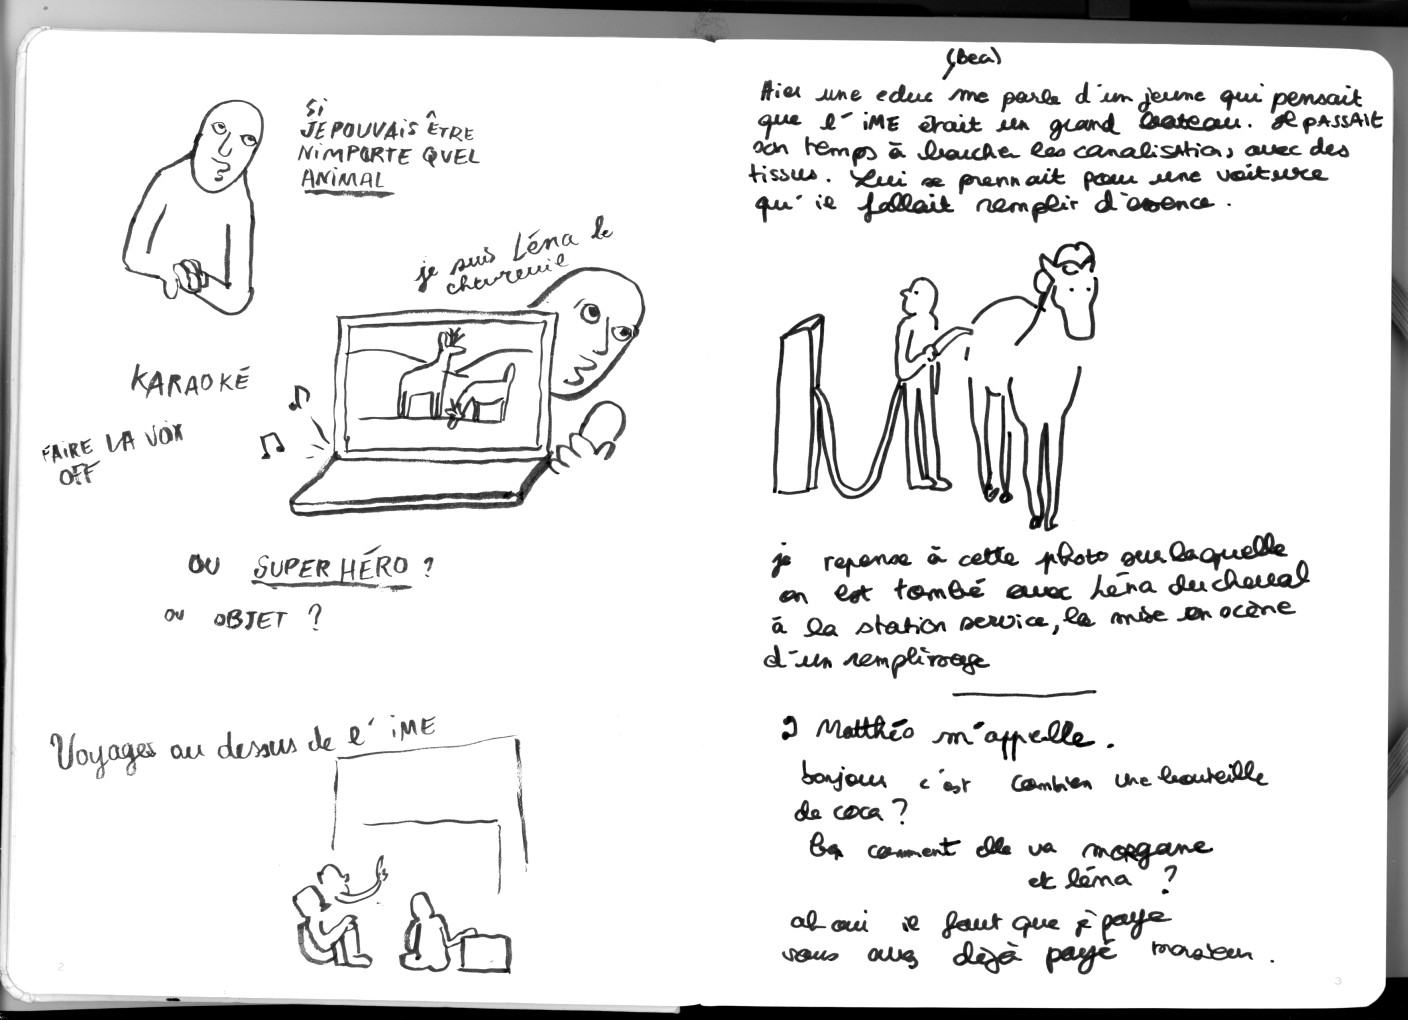 SI
JE POUVAIS ÊTRE
NIMPORTE QUEL
ANIMAL
je suis Léna le
chevreuil
KARAOKÉ
FAIRE LA VOIX
OFF
OU SUPER HÉRO ?
OU OBJET ?
Voyages au dessus de l' iME
2
(Bea)
Hier une educ me parle d'un jeune qui pensait
que l' iME était un grand bateau. Il PASSAIT
son temps à boucher les canalisations avec des
tissus. Lui se prennait pour une voiture
qu' il fallait remplir d'essence.
je repense à cette photo sur laquelle
on est tombé avec Léna du cheval
à la station service, la mise en scène
d'un remplissage
Matthéo m'appelle.
bonjour c'est combien une bouteille
de coca ?
Bon comment elle va morgane
et léna ?
ah oui il faut que je paye
vous avez déjà payé monsieur.
3